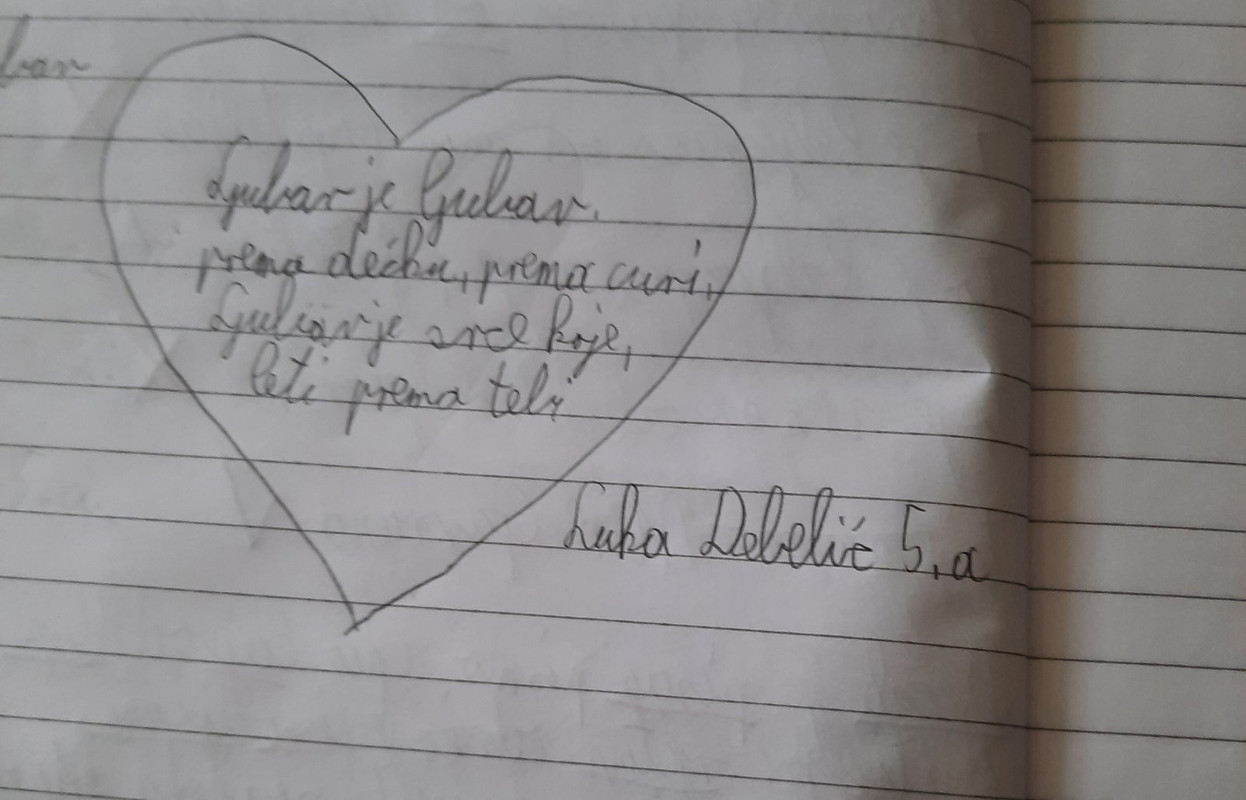 Ljubav je ljubav.
prema dečku, prema curi,
Ljubav je srce koje,
leti prema tebi
Luka Debelić 5, a